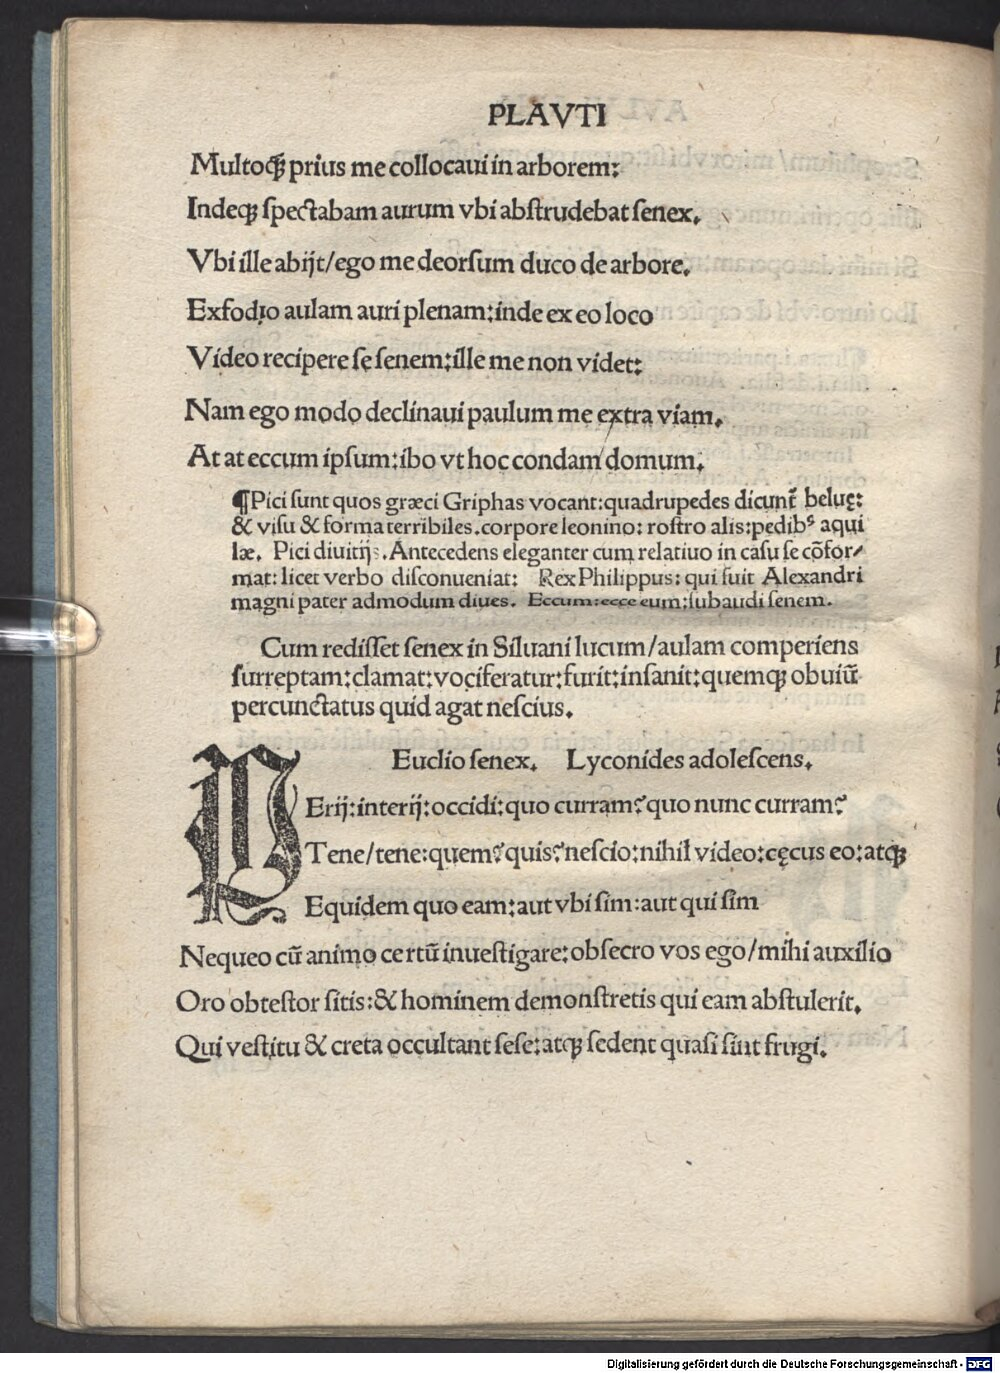 PLAVTI
Multoqꝫ prius me collocaui in arborem:
Indeqꝫ ſpectabam aurum vbi abſtrudebat ſenex.
Vbi ille abijt/ego me deorſum duco de arbore.
Exfodio aulam auri plenam:inde ex eo loco
Video recipere ſe ſenem:ille me non videt:
Nam ego modo declinaui paulum me extra viam.
At at eccum ipſum:ibo vt hoc condam domum.
¶Pici ſunt quos græci Griphas vocant:quadrupedes dicunt᷑ beluę:
& viſu & forma terribiles.corpore leonino: roſtro alis:pedibꝰ aqui
læ. Pici diuitijs.Antecedens eleganter cum relatiuo in caſu ſe cõfor⸗
mat:licet verbo diſconueniat: Rex Philippus: qui fuit Alexandri
magni pater admodum diues. Eccum:ecce eum:ſubaudi ſenem.
Cum rediſſet ſenex in Siluani lucum/aulam comperiens
ſurreptam:clamat:vociferatur:furit:inſanit:quemqꝫ obuiũ
percunctatus quid agat neſcius.
Euclio ſenex. Lyconides adoleſcens.
PErij:interij:occidi:quo curram?quo nunc curram?
Tene/tene:quem?quis?neſcio:nihil video:cęcus eo:atqꝫ
Equidem quo eam:aut vbi ſim:aut qui ſim
Nequeo cũ animo certũ inueſtigare:obſecro vos ego/mihi auxilio
Oro obteſtor ſitis:& hominem demonſtretis qui eam abſtulerit.
Qui veſtitu & creta occultant ſeſe:atqꝫ ſedent quaſi ſint frugi.
Digitalisierung gefördert durch die Deutsche Forschungsgemeinschaft - DFG